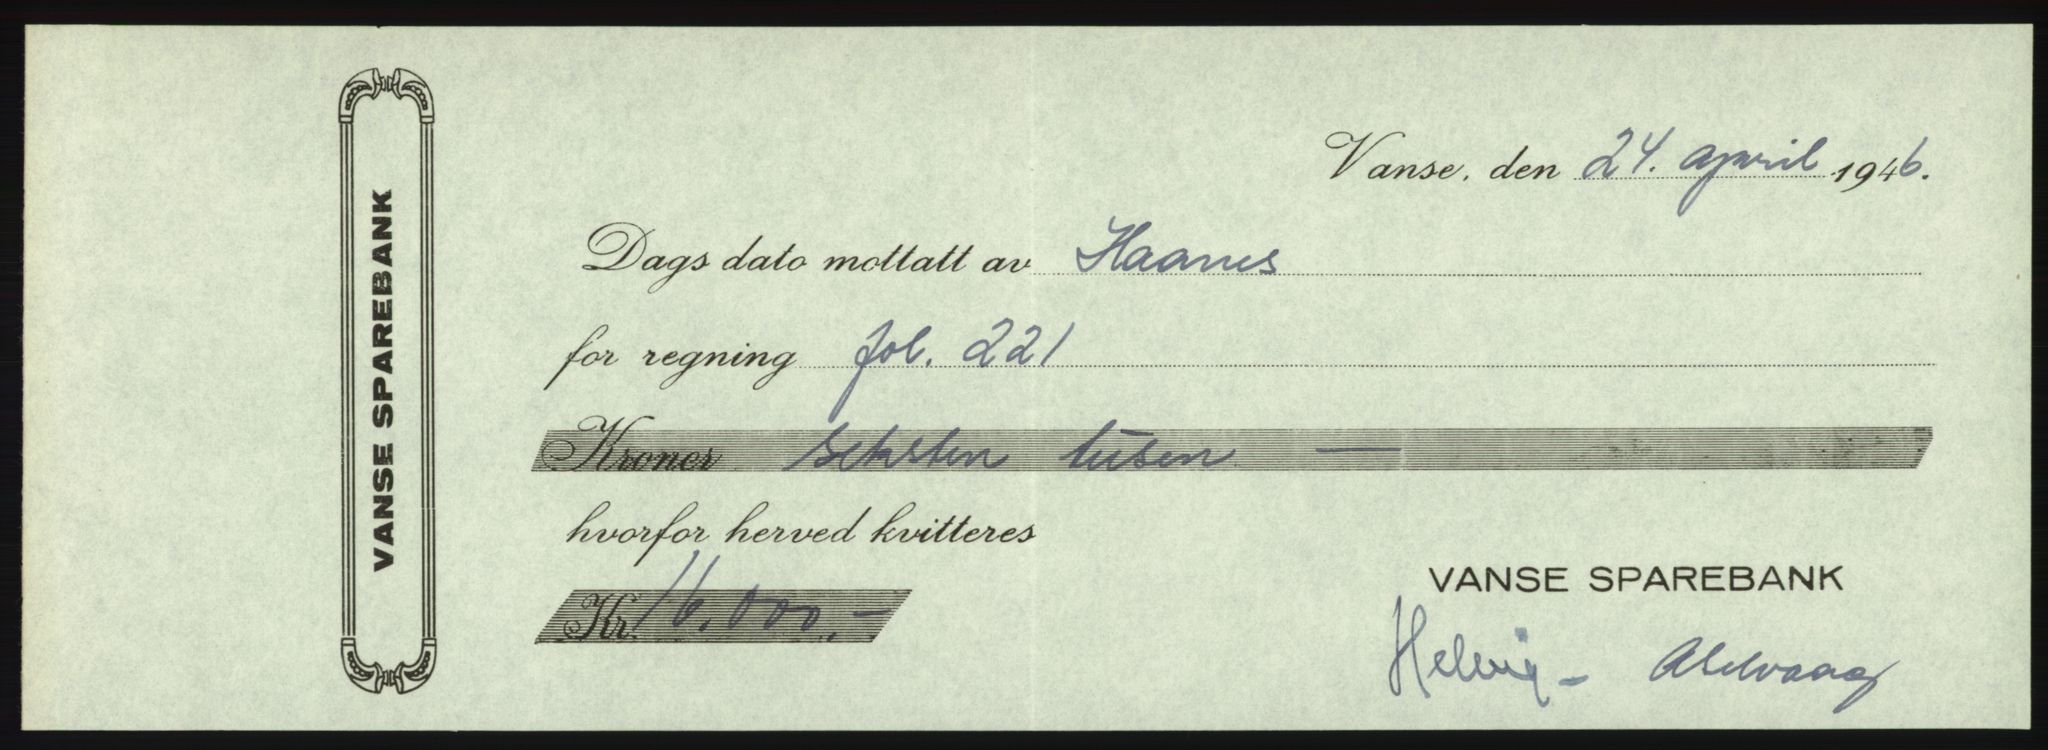 VANSE SPAREBANK
Vanse, den 24. april 1946.
Dags dato mottatt av Haanes
for regning fol. 221
Kroner seksten tusen —
hvorfor herved kvitteres
Kr. 16.000.-
VANSE SPAREBANK